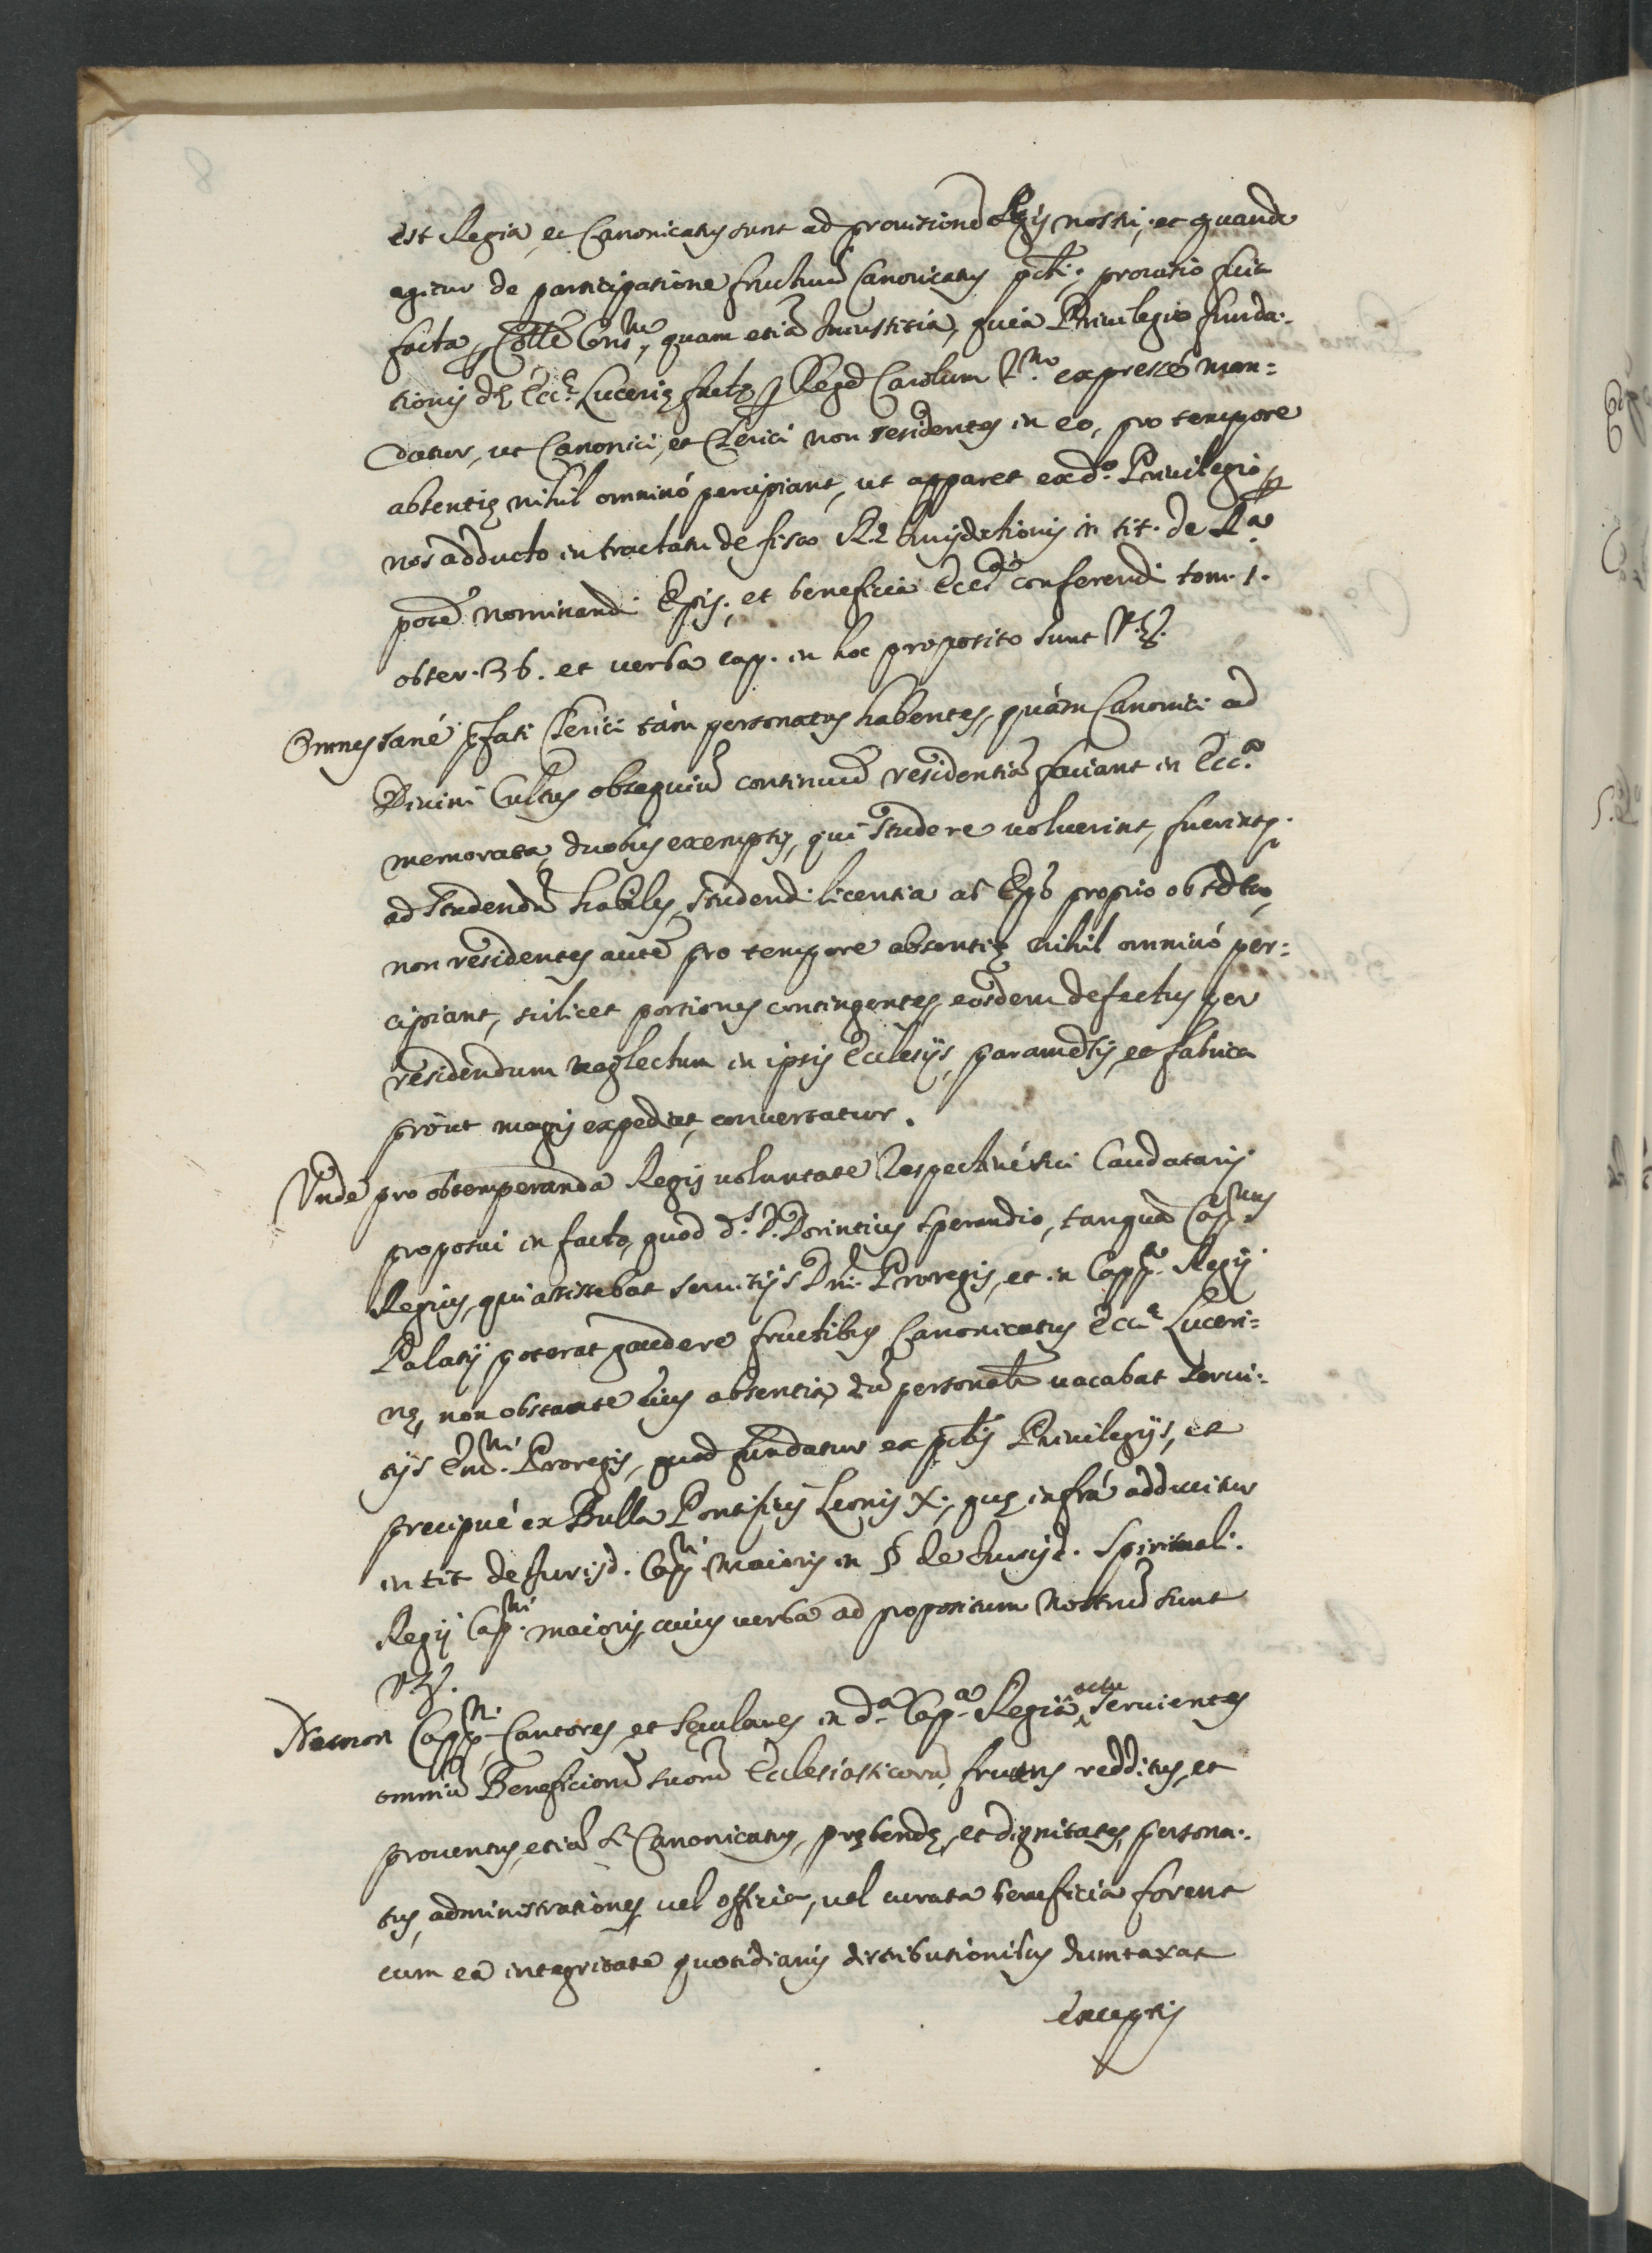 est Regia, et Canonicatus sunt ad provisionẽ Regis nostri, et quando
agitur de participatione fructuũ Canonicatus pcti. provisio fuit
facta p Colle Consm, quam etiã Iniustitia, quia Privilegio funda:
tionis dę Eccę Lucerię factę p Regẽ Carolum 2.do expressé man:
datur, ut Canonici, et Clerici non residentes in eo, pro tempore
absentię nihil omninó percipiant, ut apparet ex d.o Privilegio p
nos adducto in tractatu de fisco Rę Iurisdictionis in tit. de R.a
potẽ nominandi Epis; et beneficia Ecc.ca conferendi tom. 1.
obser. 36. et verba cap. in hoc proposito sunt Vz.
Omnes sané pfati Clerici tàm personatus habentes, quàm Canonici ad
Divini Cultus obsequiũ continuũ residentiã faciant in Ecc.a
memorata, duobus exemptis, qui studere voluerint, fuerintq.
ad studendũ habiles, studendi licentia ab Epõ proprio obtẽta,
non residentes autẽ pro tempore absentię nihil omninó per:
cipiant, scilicet portiones contingentes, eosdem defectus per
residendum neglectum in ipsis Ecclesijs, paramẽtis, et fabrica
pròut magis expediet, convertatur.
Unde pro obtemperanda Regis voluntate Respectivé sui Caudatarij
proposui in facto, quod d.s D. Dorintius Sperandio, tanquã Capnus
Regius, qui assistebat servitijs Dni Proregis, et in Capp.a Regij
Palatij poterat gaudere fructibus Canonicatus Eccę Luceri:
nę, non obstante eius absentia, dũ personalr vacabat servi:
tijs Em.mi Proregis, quod fundatur ex pctis Privilegijs, et
precipué ex Bulla Pontificis Leonis X., quę infrá adducitur
in tit de Jurisd. Cap.ni Maioris in § de Iurisd. Spirituali.
Regij Cap.ni maioris, cuius verba ad propositum nostrũ sunt
Vz.
Necnon Capp.ni Cantores, et Scculares in d.a Cap.a Regia actu servientes
omniũ Beneficiorũ suorũ Ecclesiasticorũ, fructus redditus, et
proventus, etiã si Canonicatus, prębendę, et dignitates, persona:
tus, administrationes, vel officia, vel curata beneficia forent
cum ea integritate quotidianis distributionibus dumtaxat
exceptis